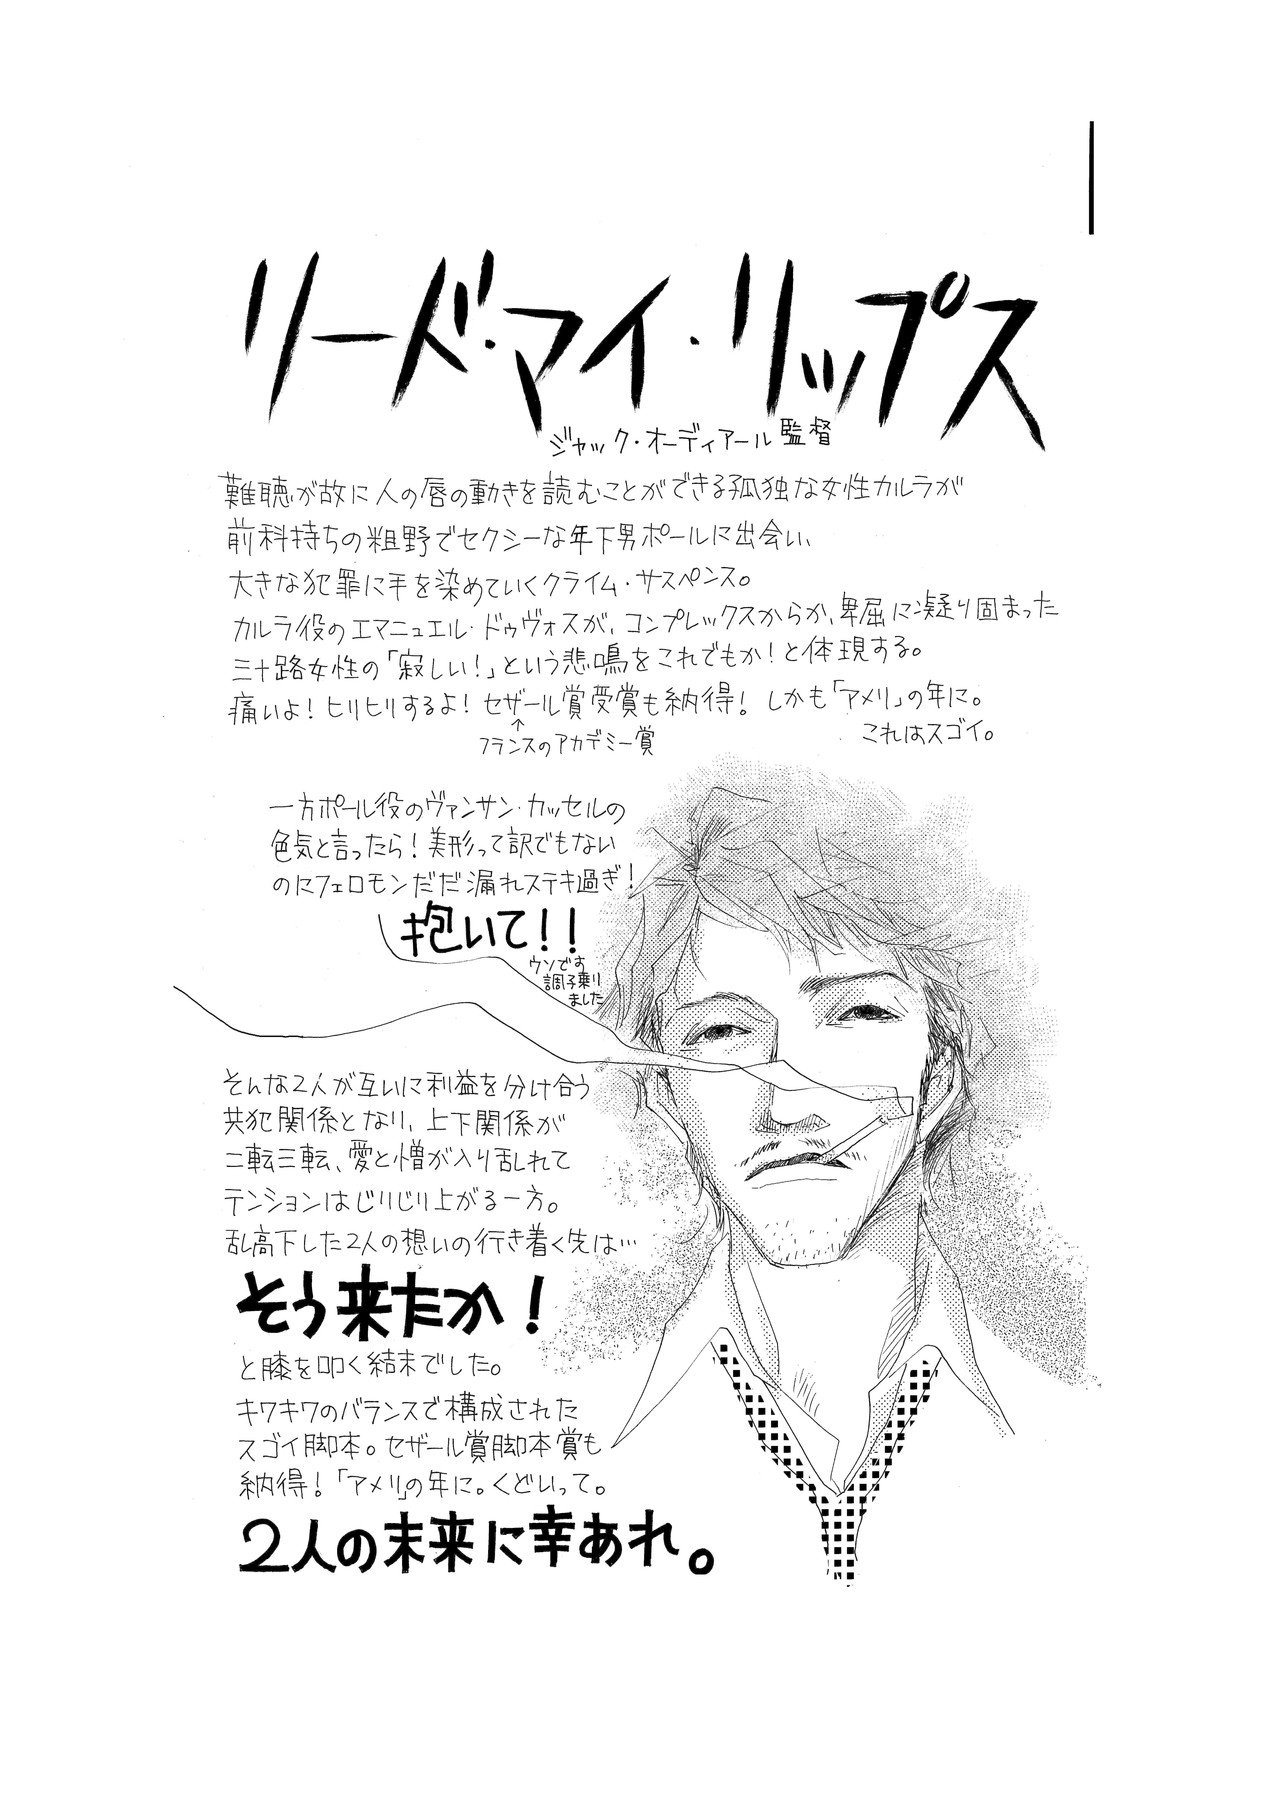 リード・マイ・リップス
ジャック・オーディアール監督
難聴が故に人の唇の動きを読むことができる孤独な女性カルラが
前科持ちの粗野でセクシーな年下男ポールに出会い、
大きな犯罪に手を染めていくクライム・サスペンス。
カルラ役のエマニュエル・ドゥヴォスが、コンプレックスからか、卑屈に凝り固まった
三十路女性の「寂しい!」という悲鳴をこれでもか!と体現する。
痛いよ!ヒリヒリするよ!セザール賞受賞も納得!しかも「アメリ」の年に。
↑
フランスのアカデミー賞
これはスゴイ。
一方ポール役のヴァンサン・カッセルの
色気と言ったら!美形って訳でもない
のにフェロモンだだ漏れステキ過ぎ!
抱いて!!
ウソです
調子乗り
ました
そんな2人が互いに利益を分け合う
共犯関係となり、上下関係が
二転三転、愛と憎が入り乱れて
テンションはじりじり上がる一方。
乱高下した2人の想いの行き着く先は…
そう来たか!
と膝を叩く結末でした。
キワキワのバランスで構成された
スゴイ脚本。セザール賞脚本賞も
納得!「アメリ」の年に。くどいって。
2人の未来に幸あれ。